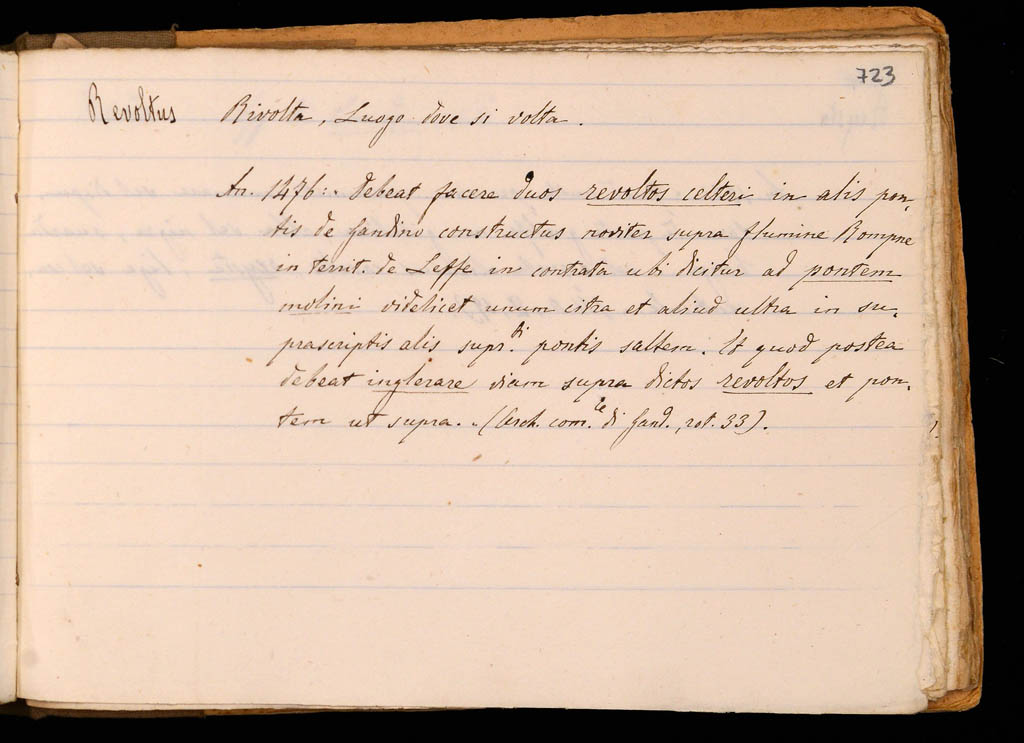 723
Revoltus Rivolta, Luogo dove si volta.
An. 1476:. Debeat facere duos revoltos celteri in alis pon-
tis de Gandino constructus noviter supra flumine Rompne
in territ. de Leffe in contrata ubi dicitur ad pontem
molini videlicet unum citra et aliud ultra in su-
prascriptis alis supr.ti pontis saltem. Et quod postea
debeat inglerare viam supra dictos revoltos et pon-
tem ut supra.. (Arch. com.le di Gand., rot. 33).